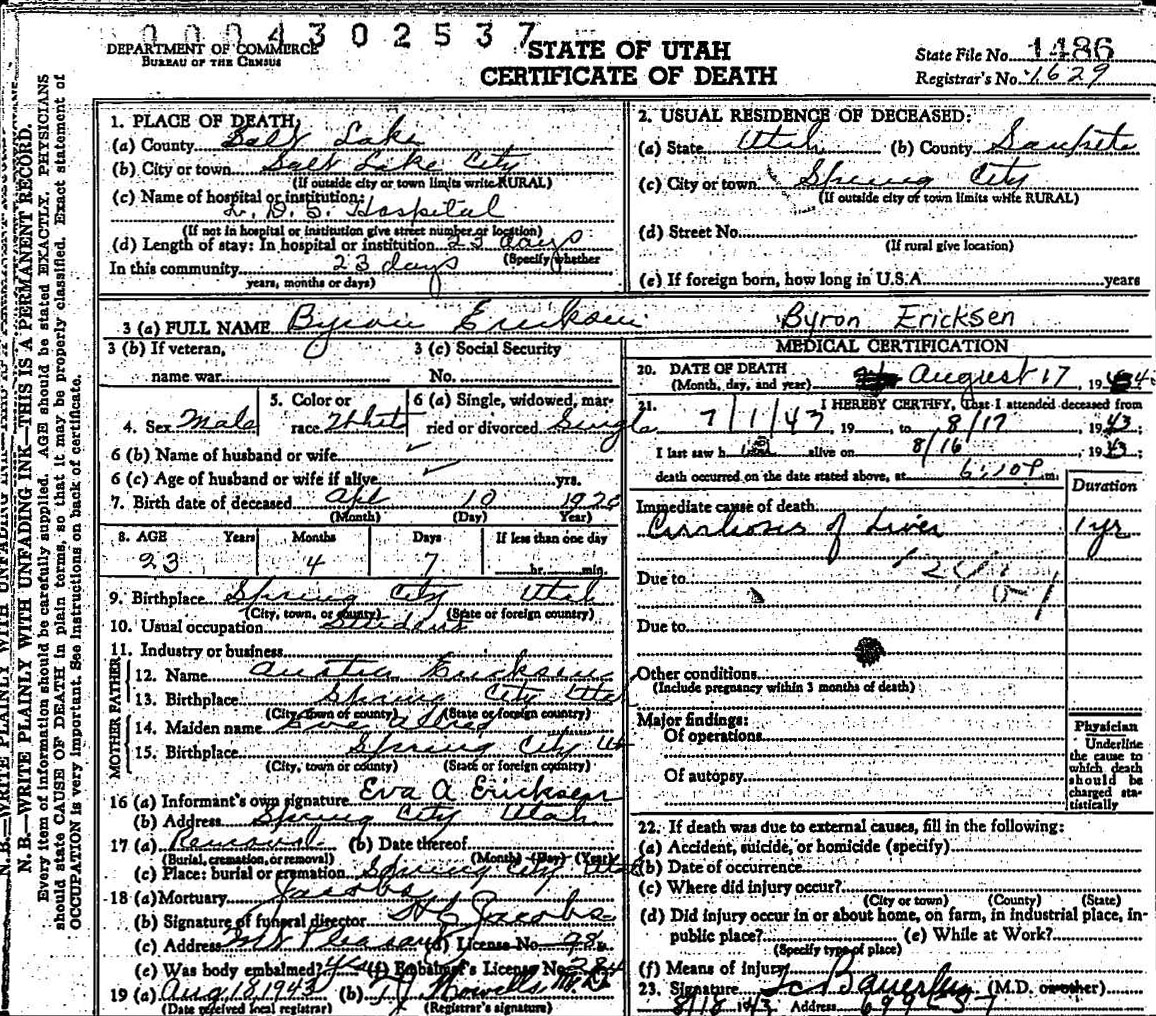 0004302537
DEPARTMENT OF COMMERCE
BUREAU OF THE CENSUS
STATE OF UTAH
CERTIFICATE OF DEATH
State File No. 1486
Registrar's No. 1629
N. B.—WRITE PLAINLY WITH UNFADING INK—THIS IS A PERMANENT RECORD.
Every item of information should be carefully supplied. AGE should be stated EXACTLY. PHYSICIANS
should state CAUSE OF DEATH in plain terms, so that it may be properly classified. Exact statement of
OCCUPATION is very important. See instructions on back of certificate.
1. PLACE OF DEATH
(a) County Salt Lake
(b) City or town Salt Lake City
(If outside city or town limits write RURAL)
(c) Name of hospital or institution:
L. D. S. Hospital
(If not in hospital or institution give street number or location)
(d) Length of stay: In hospital or institution 23 days
(Specify whether
In this community 23 days
years, months or days)
2. USUAL RESIDENCE OF DECEASED:
(a) State Utah (b) County Sanpete
(c) City or town Spring City
(If outside city or town limits write RURAL)
(d) Street No.
(If rural give location)
(e) If foreign born, how long in U.S.A. years
3 (a) FULL NAME Byron Ericksen Byron Ericksen
3 (b) If veteran,
name war
3 (c) Social Security
No.
4. Sex Male
5. Color or
race White
6 (a) Single, widowed, mar-
ried or divorced Single
6 (b) Name of husband or wife
6 (c) Age of husband or wife if alive yrs.
7. Birth date of deceased Apr 10 1920
(Month) (Day) Year)
8. AGE Years Months Days If less than one day
23 4 7 hr. min.
9. Birthplace Spring City Utah
(City, town, or county) (State or foreign country)
10. Usual occupation Student
11. Industry or business
FATHER
12. Name Austin Ericksen
13. Birthplace Spring City Utah
(City, town or county) (State or foreign country)
MOTHER
14. Maiden name Eva Allred
15. Birthplace Spring City Ut
(City, town or county) (State or foreign country)
16 (a) Informant's own signature Eva A Ericksen
(b) Address Spring City Utah
17 (a) Removal (b) Date thereof
(Burial, cremation, or removal) (Month) (Day) (Year)
(c) Place: burial or cremation Spring City Utah
18 (a) Mortuary Jacobs
(b) Signature of funeral director Jacobs
(c) Address Mt Pleasant License No. 98
(e) Was body embalmed? yes (f) Embalmer's License No.
19 (a) Aug 18, 1943 (b)
(Date received local registrar) (Registrar's signature)
MEDICAL CERTIFICATION
20. DATE OF DEATH
(Month, day, and year) August 17, 19
21. I HEREBY CERTIFY, That I attended deceased from
7/1/43, 19 , to 8/17, 1943;
I last saw h im alive on 8/16, 1943;
death occurred on the date stated above, at 6:10 P m.
Duration
Immediate cause of death
Cirrhosis of Liver 1 yr
Due to
Due to
Other conditions
(Include pregnancy within 3 months of death)
Major findings:
Of operations
Of autopsy
Physician
Underline
the cause to
which death
should be
charged sta-
tistically
22. If death was due to external causes, fill in the following:
(a) Accident, suicide, or homicide (specify)
(b) Date of occurrence
(c) Where did injury occur?
(City or town) (County) (State)
(d) Did injury occur in or about home, on farm, in industrial place, in-
public place? (e) While at Work?
(Specify type of place)
(f) Means of injury
23. Signature (M.D. or other)
8/18 1943 Address